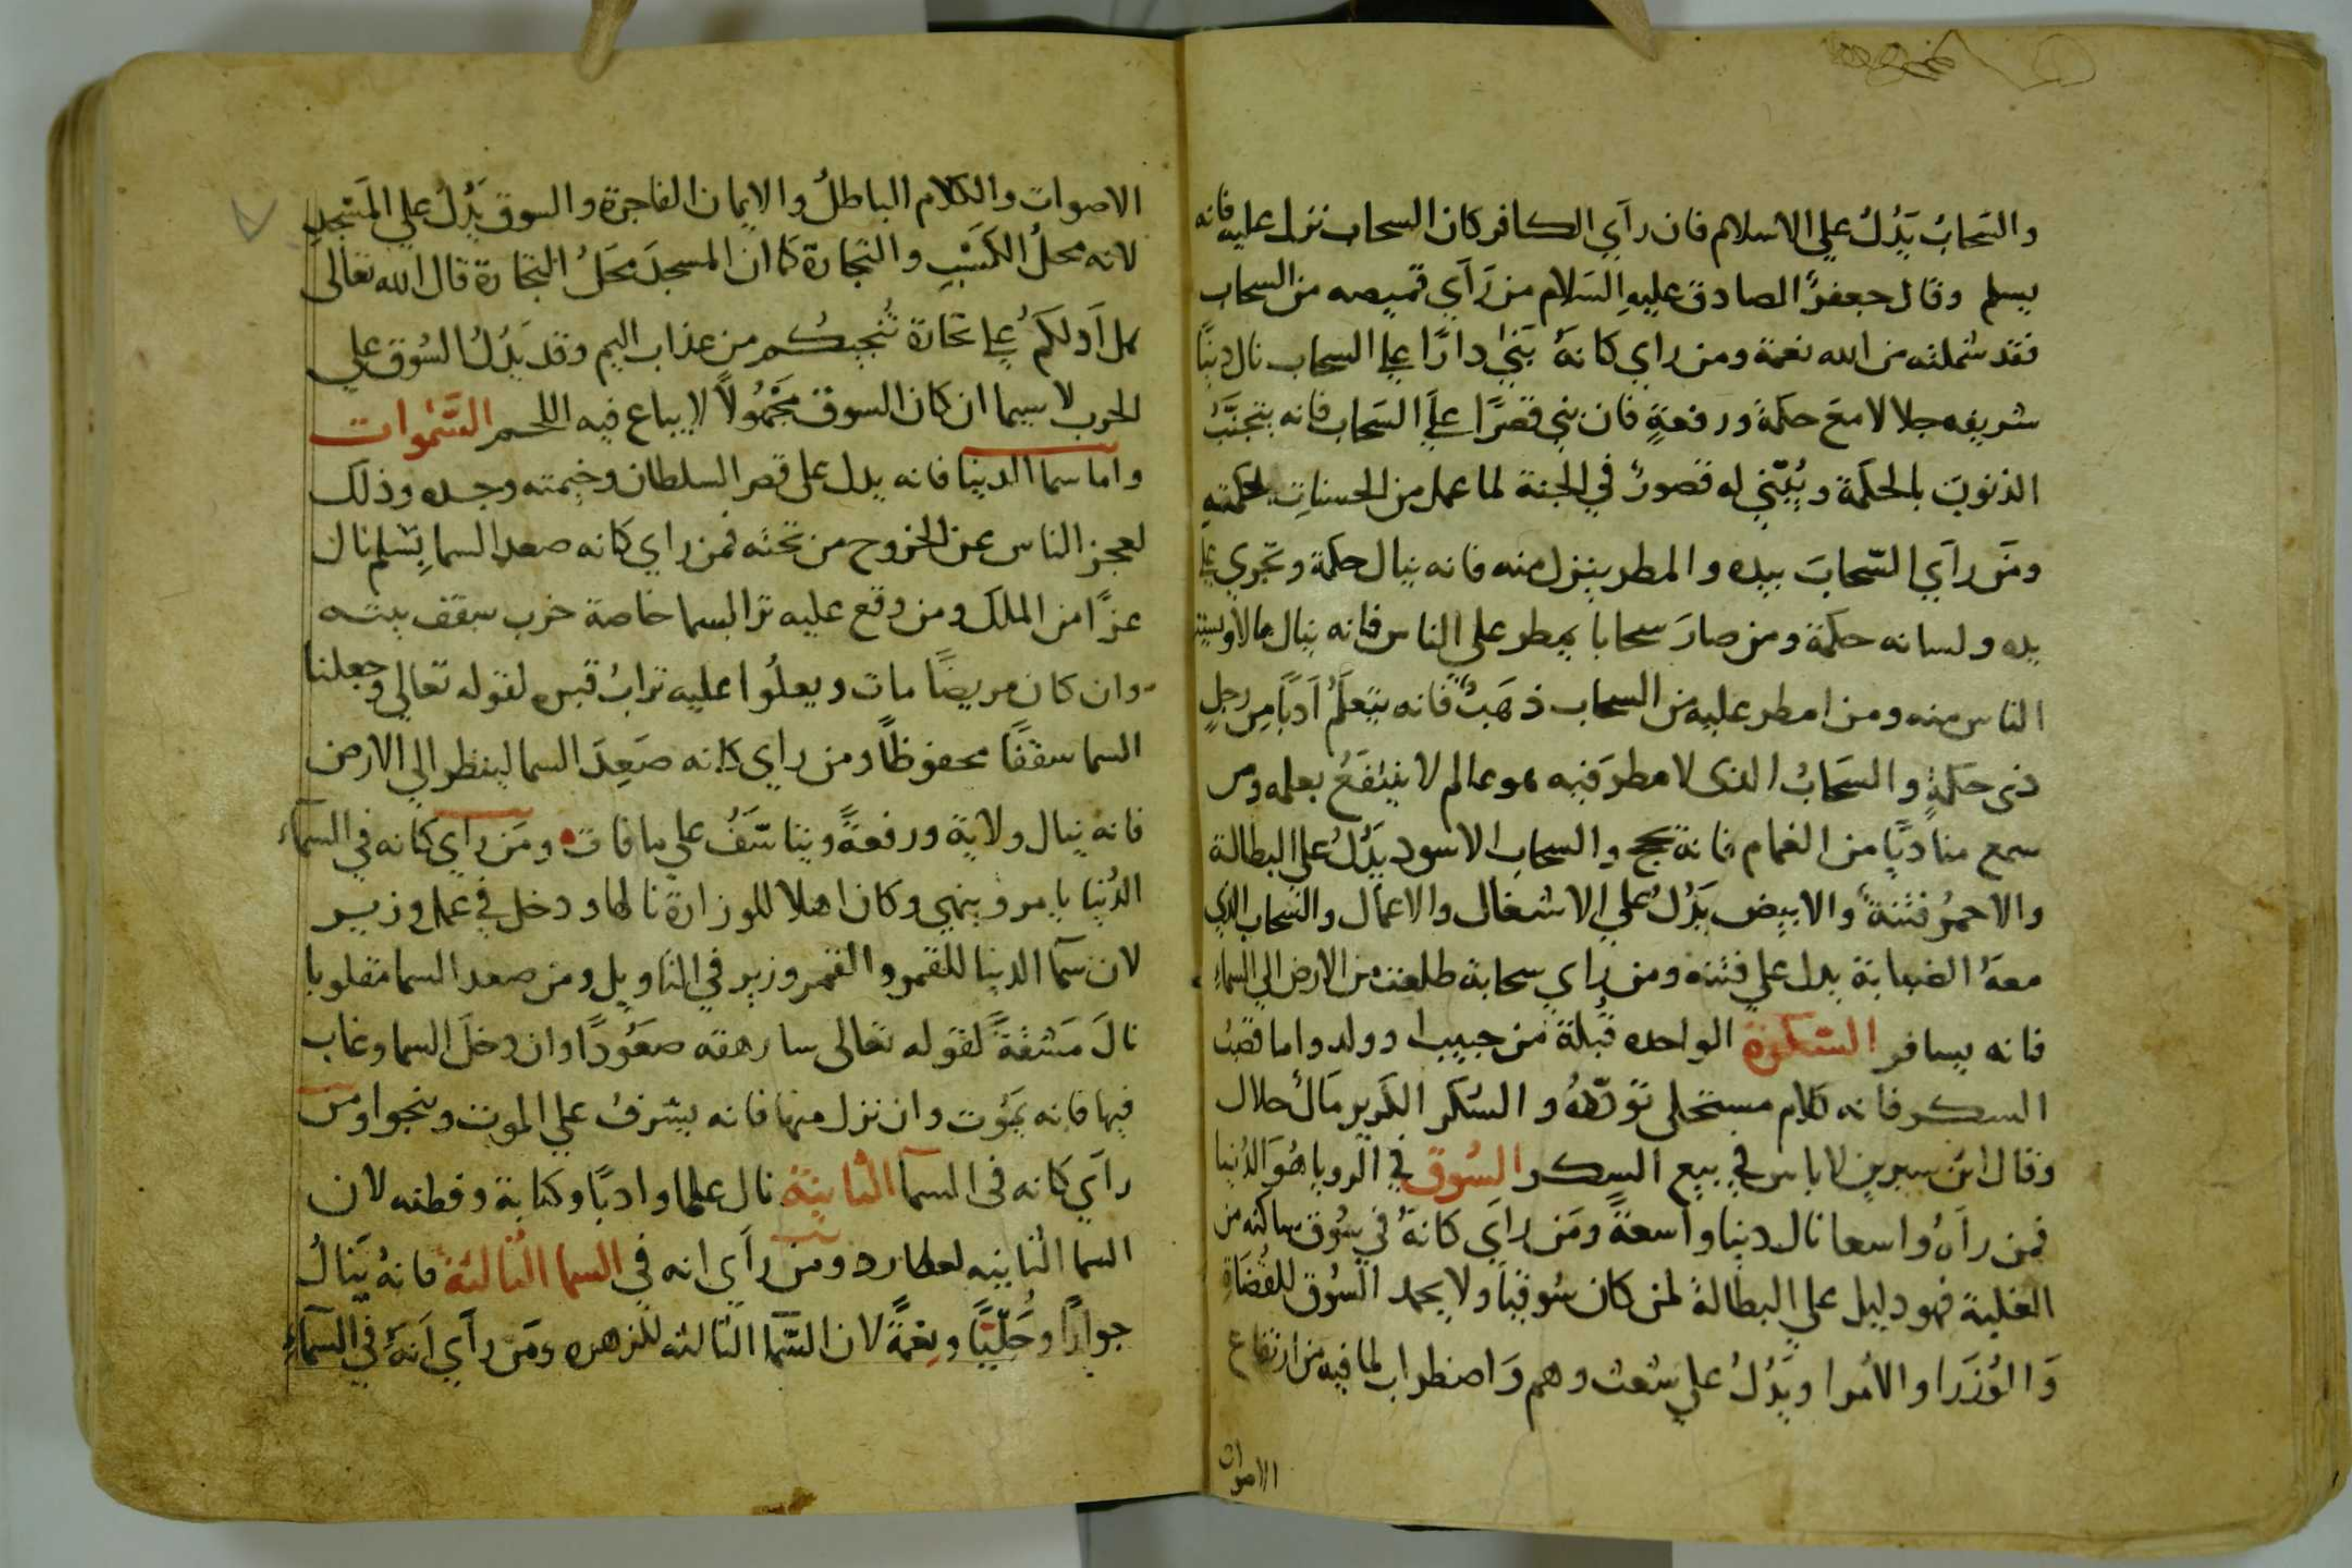 والسَحابُ يَدُلُ علي الاسلام فان رآي الكافر كان السحاب نزل عليه فانه
يسلم وقال جعفرُ الصادق عليهِ السَلام من رَآي قميصه من السحاب
فقد شملته من الله نعمة ومن راي كانهُ بَنىٰ دارًا علي السحاب نال دنيًا
شريفه حلالا مع حكمة ورفعةٍ فان بني قصرًا علَي السَحاب فانه يتجنَّبُ
الذنوبَ بالحكمة ويُبْنىٰ له قصورٌ في الجنة لما عمل من الحسناتِ بحكمته
ومَن رآي السّحابَ بيده والمطر ينزل منه فانه ينال حكمة وتجري علي
يده ولسانه حكمة ومن صارَ سحابا يمطر علي الناس فانه ينال مالا
الناس منه ومن امطر عليه من السحاب ذهَبٌ فانه يتعلَمُ اَدبًا مِن رجلٍ
ذي حكمةٍ والسَحَابُ الذي لا مطرَ فيه هو عالم لا ينتفعُ بعلمه ومن
سمع مناديًا من الغمام فانه يحج والسحاب الاسود يَدُلُ علي البطالة
والاحمرُ فتنة والابيض يَدُلُ علي الاشتغال والاعمال والسَحاب الذي
معهُ الضبابة يدل علي فتنه ومن راي سحابة طلعت من الارض الي السماءِ
فانه يسافر السّكرة الواحده قُبلة من حبيب او ولد واما قصبُ
السكر فانه كلام مستحلي تودّهُ والسُكر الكرير مَالٌ حلال
وقال ابن سيرين لاباس في بيع السكر السُوق في الرويا هُوَ الدُنيا
فمن رآهُ واسعا نال دينا واسعةً ومَن راَي كانهُ في سُوق ساكنه من
الغلبة فهو دليل علي البطالة لمن كان سُوقيًا ولا يحمد السُوق للقُضَاةِ
وَالوُزَرا والأمرا ويَدُلُ علي شعث وهم وَاضطراب لما فيه من ارتفاع
الاصوات
الاصوات والكلام الباطلُ والايمان الفاجرة والسوق يَدُل علي المَسْجِدِ
لانه محلُ الكَسْبِ والتجارة كما ان المسجدَ محَلُ التجارة قال الله تعالى
هل اَدلكَمُ علي تجارة تُنجيكُم من عذاب اليم وقد يَدُلُ السُوق علي
الحرب لا سيما ان كان السوق مجَهُولاً لا يباع فيه اللحم السَّمٰوات
واما سما الدينا فانه يدل على قصر السلطان وخيمته وجسده وذلك
لعجز الناس عن الخروح من تحته فمن راي كانه صعد السما بِسُلم نال
عزًا من الملك ومن وقع عليه ترا السما خاصة خرب سقف بيته
وان كان مريضًا مات ويعلُوا عليه ترابُ قبره لقوله تعالي وجعلنا
السما سقفًا محفوظًا ومن راي كانه صَعِدَ السما لينظر الي الارض
فانه ينال ولاية ورفعةً ويتاسّفُ علي ما فات ومَن رآي كانه في السمآءِ
الدُنيا يامر وينهي وكان اهلا للوزارة نالها ودخل في عمل وزير
لان سمآ الدينا للقمر والقمر وزير في التاويل ومن صعد السما مقلوبا
نالَ مَشقةً لقوله تعالى سارهقه صعَوُدًا وان دخلَ السما وغاب
فيها فانه يَمَوُت وان نزل منها فانه يشرفُ علي الموت وينجوا ومن
رآي كانه في السمآ الثانيةُ نال علما وادبًا وكتابة وفطنه لان
السما الثانيه لعطارد ومن رآي انه في السما الثالثةُ فانهُ يَنالُ
جوارًا وحُليًّا ونِعمةً لان السَّمآ الثالثه للزهره ومَن رآي اَنهُ في السمآءِ